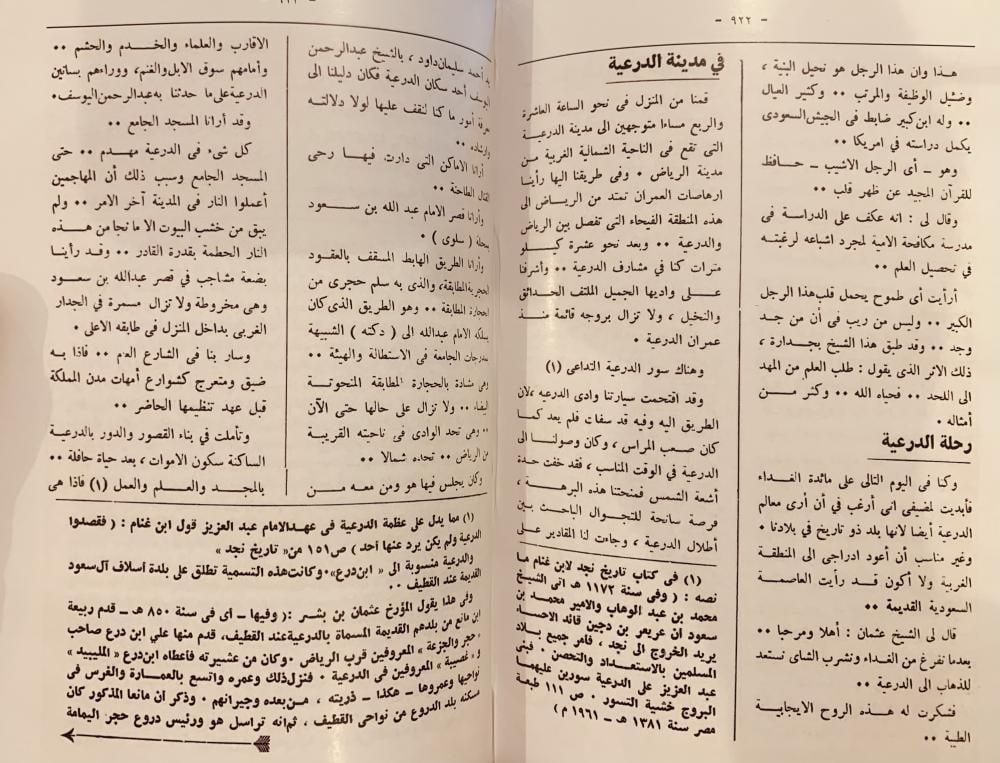 - ٩٢٢ -
هذا وان هذا الرجل هو نحيل البنية ،
وضئيل الوظيفة والمرتب ٠٠ وكثير العيال
٠٠ وله ابن كبير ضابط فى الجيش السعودى
يكمل دراسته في امريكا ٠٠
وهو ـ أى الرجل الاشيب ـ حـافظ
للقرآن المجيد عن ظهر قلب ٠٠
وقال لى : انه عكف على الدراسة فى
مدرسة مكافحة الامية لمجرد اشباعه لرغبته
في تحصيل العلم ٠٠
أرأيت أى طموح يحمل قلب هذا الرجل
الكبير ٠٠ وليس من ريب فى أن من جـد
وجد ٠٠ وقد طبق هذا الشيخ بجـدارة ،
ذلك الاثر الذى يقول : طلب العلم من المهد
الى اللحد ٠٠ فحياه الله ٠٠ وكثر مـــن
أمثاله ٠
رحلة الدرعية
وكنا فى اليوم التالى على مائدة الغـداء
فأبديت لمضيفى انى أرغب في أن أرى معالم
الدرعية أيضا لانها بلد ذو تاريخ في بلادنا ٠
وغير مناسب أن أعود ادراجى الى المنطقة
الغربية ولا أكون قـد رأيت العاصمـة
السعودية القديمة ٠٠
قال لى الشيخ عثمان : أهلا ومرحبا ٠٠
بعدما نفرغ من الغداء ونشرب الشاى نستعد
للذهاب الى الدرعية ٠٠
فشكرت له هـذه الروح الايجابيـة
الطيبة ٠٠
في مدينة الدرعية
قمنا من المنزل فى نحو الساعة العاشرة
والربع مساءا متوجهين الى مدينة الدرعيـة
التى تقع فى الناحية الشمالية الغربية مـن
مدينة الرياض ٠ وفى طريقنا اليها رأينـا
ارهاصات العمران تمتد من الريـاض الى
هذه المنطقة الفيحاء التى تفصل بين الرياض
والدرعية ٠٠ وبعد نحو عشرة كـــلو
مترات كنا في مشارف الدرعية ٠٠ وأشرفنا
عـــلى واديها الجميل الملتف الحـدائق
والنخيل ، ولا تزال بروجه قائمة منـــذ
عمران الدرعية ٠
وهناك سور الدرعية التداعى (١)
وقد اقتحمت سيارتنا وادى الدرعيه ،لان
الطريق اليه وفيه قد سفلت فلم يعد كمـا
كان صعب المراس ، وكان وصولنـــا الى
الدرعية في الوقت المناسب ، فقد خفت حـدة
أشعة الشمس فمنحتنا هذه البرهــة ،
فرصة سانحة للتجوال الباحث بـين
أطلال الدرعية ، وجاءت لنا المقادير عـلى
(١) فى كتاب تاريخ نجد لابن غنام ما
نصه : ( وفى سنة ١١٧٢ هـ اتى الشيخ
محمد بن عبد الوهاب والامير محمـد بن
سعود ان عريعر بن دجين قائد الاحساء
يريد الخروج الى نجد ، فامر جميع بـلاد
المسلمين بالاستعـداد والتحصن ٠ فبنى
عبد العزيز على الدرعية سورين عليهمـا
البروج خشية التسور ٠ ص ١١١ طبعـة
مصر سنة ١٣٨١ هـ ـ ١٩٦١ م )
أحمد سليمان داود ، بالشيخ عبدالرحمن
اليوسف أحد سكان الدرعية فكان دليلنا الى
معرفة أمور ما كنا لنقف عليها لولا دلالتـه
وارشاده ٠٠
أرانا الاماكن التى دارت فيهـــا رحى
القتال الطاحنة ٠٠
وأرانا قصر الامام عبد الله بن ســـعود
بمحلة ( سلوى ) ٠
وأرانا الطريق الهابط المسقف بالعقود
الحجرية المطابقة، والذى به سلم حجرى من
الحجارة المطابقة ٠٠ وهو الطريق الذى كان
يسلكه الامام عبدالله الى ( دكته ) الشبيهة
بمدرجات الجامعة فى الاستطالة والهيئة ٠٠
وهى مشادة بالحجارة المطابقة المنحوتـــة
البيضاء ٠٠ ولا تزال على حالها حتى الآن
٠٠ وهى تحد الوادى فى ناحيته القريبـة
من الرياض ٠٠ تحده شمالا ٠٠
وكان يجلس فيها هو ومن معه مـــن
الاقارب والعلماء والخــدم والحشم ٠٠
وأمامهم سوق الابل والغنم، ووراءهم بساتين
الدرعية على ما حدثنا به عبدالرحمن اليوسف٠
وقد أرانا المسجد الجامع ٠٠
كل شىء فى الدرعية مهـدم ٠٠ حتى
المسجد الجامع وسبب ذلك أن المهاجمين
أعملوا النار في المدينة آخر الامر ٠٠ ولم
يبق من خشب البيوت الا ما نجا من هـــذه
النار الحطمة بقدرة القادر ٠٠ وقـد رأينـا
بضعة مشاجب في قصر عبدالله بن سعـود
وهى مخروطة ولا تزال مسمرة في الجدار
الغربى بداخل المنزل فى طابقه الاعلى ٠
وسار بنا فى الشارع العام ٠٠ فاذا بـه
ضيق ومتعرج كشوارع أمهات مدن المملكة
قبل عهد تنظيمها الحاضر ٠٠
وتأملت في بناء القصور والدور بالدرعيـة
الساكنة سكون الاموات ، بعد حياة حافلة ٠٠
بالمجـد والعـــلم والعمل (١) فاذا هى
(١) مما يدل على عظمة الدرعية فى عهـد الامام عبد العزيز قول ابن غنام : ( فقصدوا
الدرعية ولم يكن يرد عنها أحد ) ص١٥١ من« تاريخ نجد »
والدرعية منسوبة الى « ابن درع »٠وكانت هذه التسمية تطلق على بلدة أسلاف آل سعود
القديمة عند القطيف ٠٠
وفى هذا يقول المؤرخ عثمان بن بشـــر :( وفيها ـ اى فى سنة ٨٥٠ هـ ـ قدم ربيعة
ابن مانع من بلدهم القديمة المسماة بالدرعية عند القطيف، قدم منها علي ابن درع صاحب
« حجر والجزعة » المعروفين قرب الرياض ٠وكان من عشيرته فأعطاه ابن درع « المليبيد »
و « غصيبة » المعروفين فى الدرعية ٠ فنزل ذلك وعمره واتسع بالعمـارة والغرس فى
نواحيها وعمروها ـ هكذا ـ ذريته ، مـن بعده وجيرانهم ٠ وذكر ان مانعا المذكور كان
مسكنه بلد الدروع من نواحى القطيف ، ثم انه تراسل هو ورئيس دروع حجر اليمامة